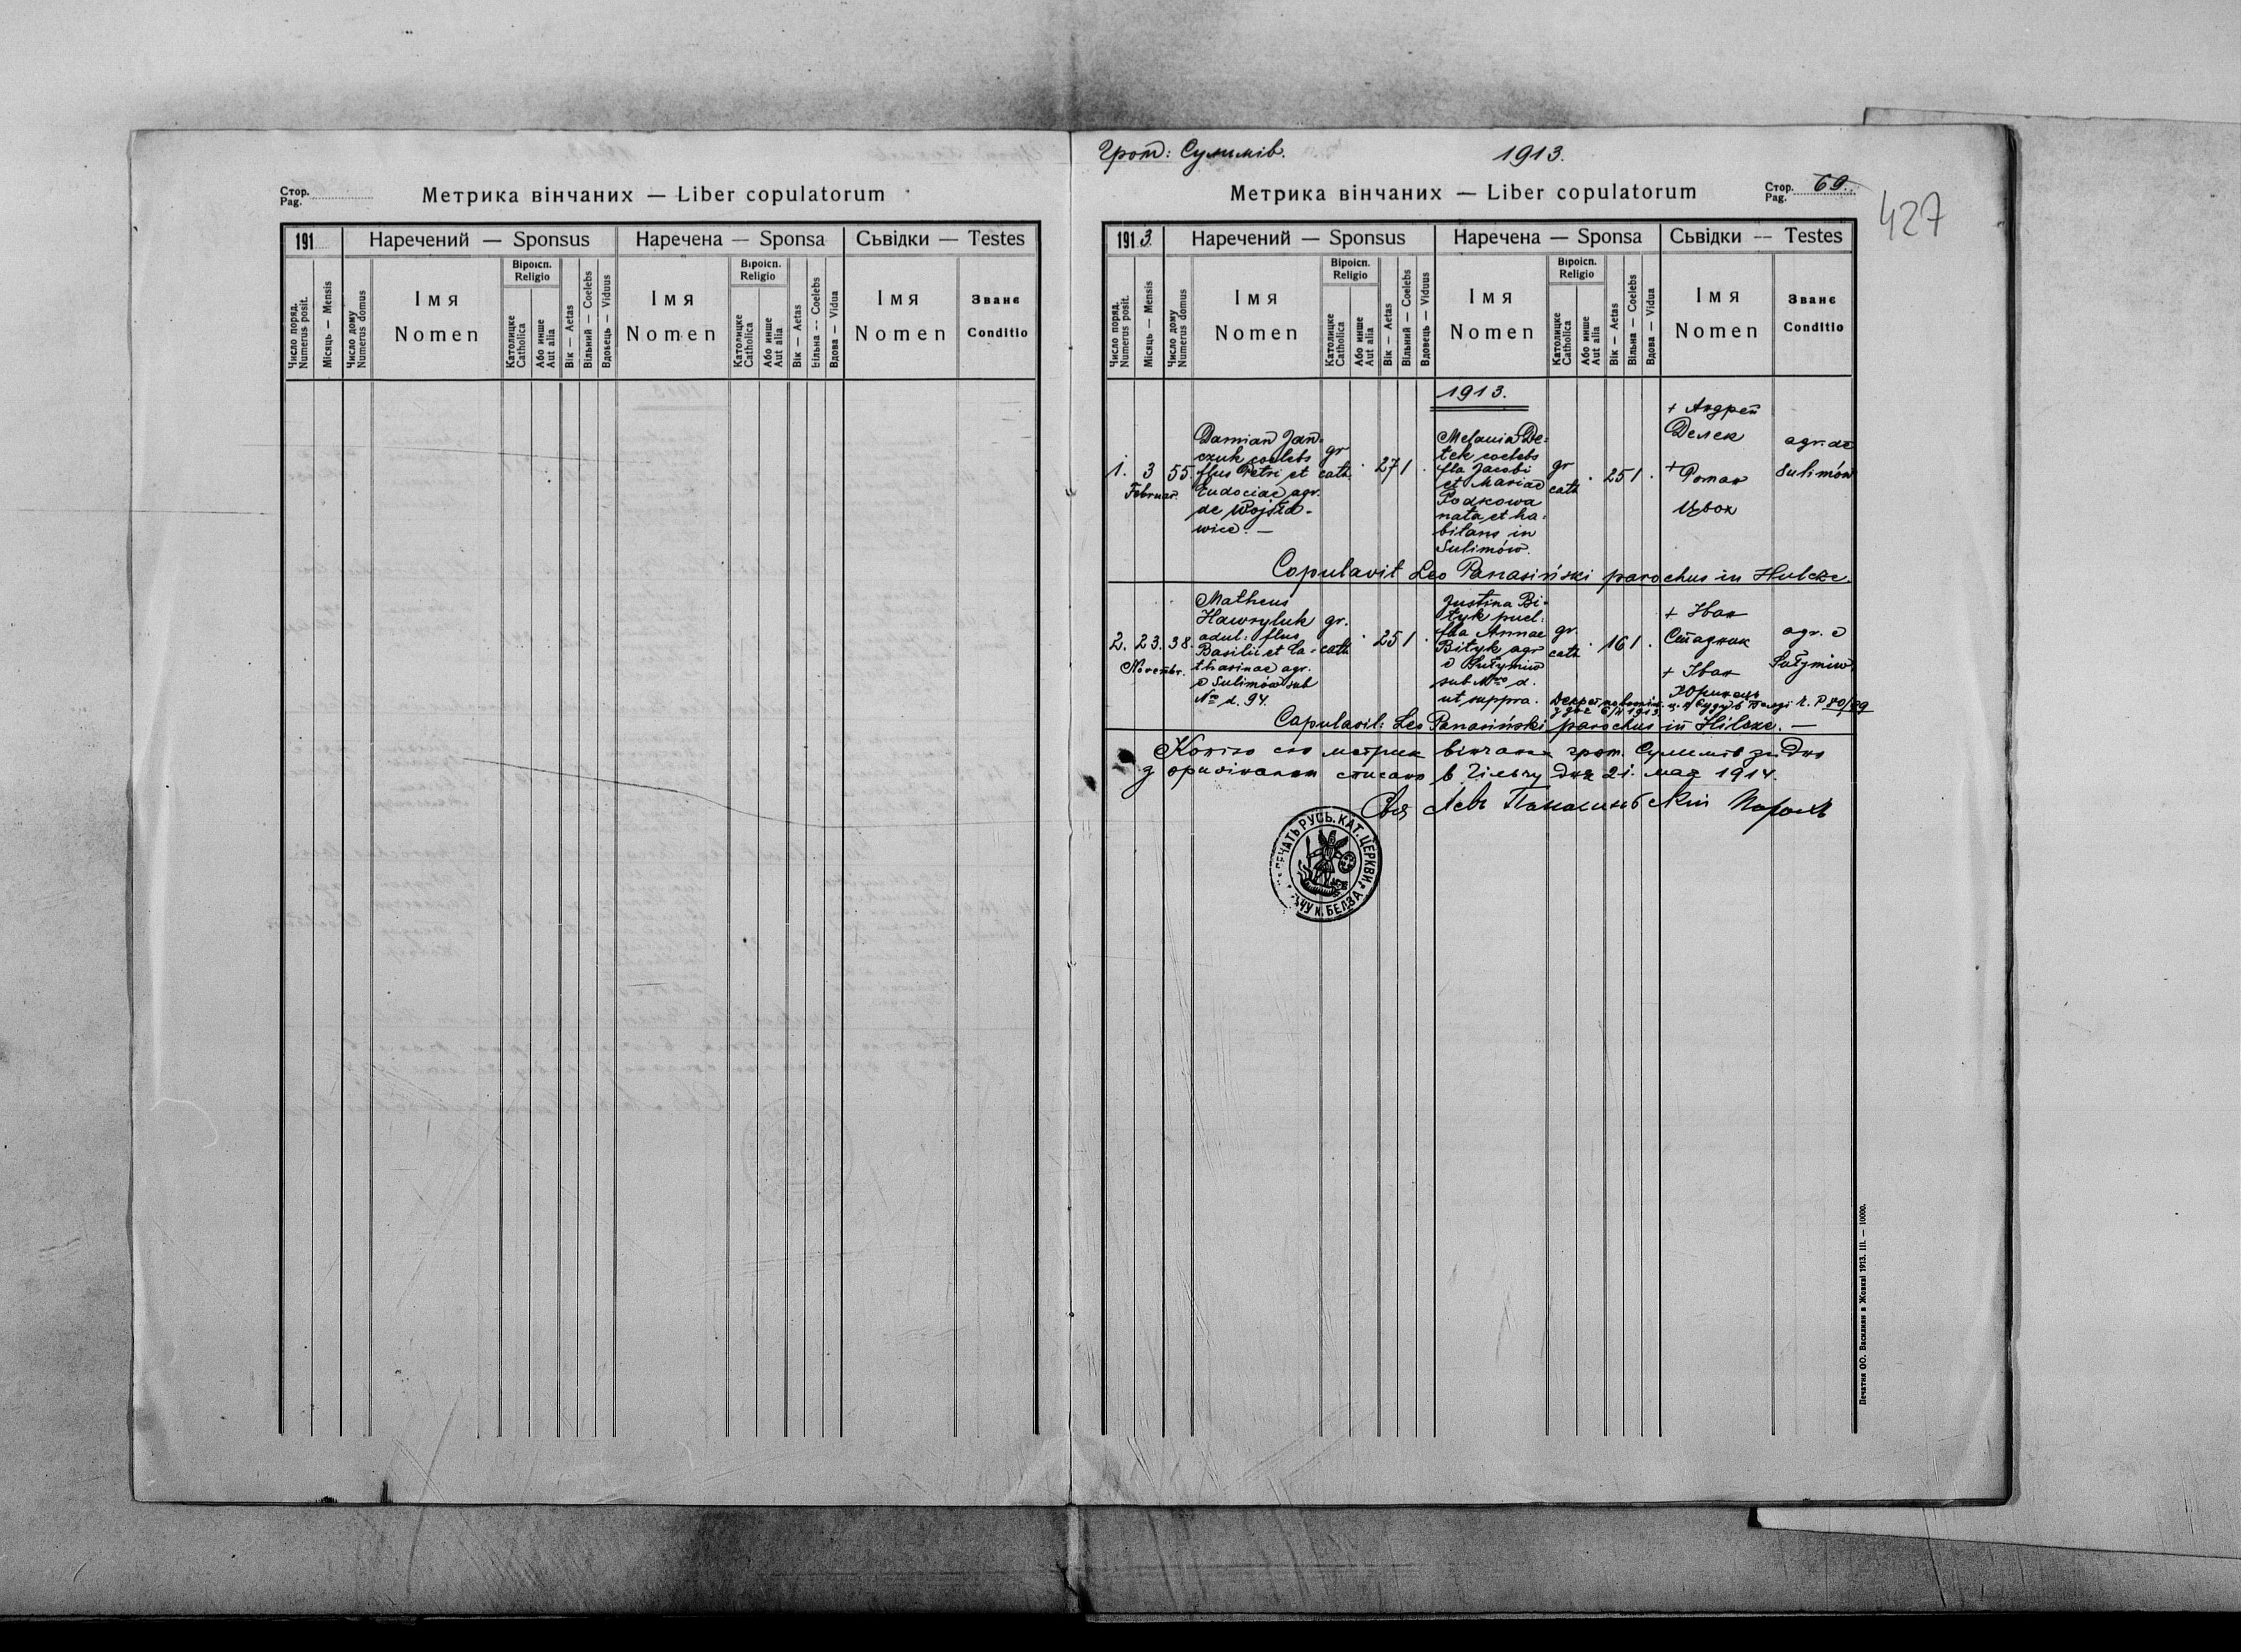 Стор.
Pag.
Метрика вінчаних — Liber copulatorum
191
Наречений — Sponsus
Наречена — Sponsa
Сьвідки — Testes
Число поряд.
Numerus posit.
Місяць — Mensis
Число дому
Numerus domus
Імя
Nomen
Віроісп.
Religio
Католицке
Catholica
Або инше
Aut alia
Вік — Aetas
Вільний — Coelebs
Вдовець — Viduus
Імя
Nomen
Віроісп.
Religio
Католицке
Catholica
Або инше
Aut alia
Вік — Aetas
Вільна — Coelebs
Вдова — Vidua
Імя
Nomen
Званє
Conditio
Гром: Сулимів.
1913.
Метрика вінчаних — Liber copulatorum
Стор.
Pag.
69.
427
1913.
Наречений — Sponsus
Наречена — Sponsa
Сьвідки — Testes
Число поряд.
Numerus posit.
Місяць — Mensis
Число дому
Numerus domus
Імя
Nomen
Віроісп.
Religio
Католицке
Catholica
Або инше
Aut alia
Вік — Aetas
Вільний — Coelebs
Вдовець — Viduus
Імя
Nomen
Віроісп.
Religio
Католицке
Catholica
Або инше
Aut alia
Вік — Aetas
Вільна — Coelebs
Вдова — Vidua
Імя
Nomen
Званє
Conditio
1913.
1. 3 55.
Februar.
Damian Jan-
czuk coelebs
flus Petri et
Eudociae agr.
de Wojsła-
wice. —
gr
cath.
27 1
Melania De-
lek coelebs
fla Jacobi
et Mariae
Podkowa
nata et ha-
bitans in
Sulimów.
gr
cath
25 1
+ Андрей
Делек
+ Роман
Цьох
agr. de
Sulimów
Copulavit Leo Panasiński parochus in Hulcze.
2. 23. 38.
Novembr.
Matheus
Hawryluk
adul: flus
Basilii et Ca-
tharinae agr.
e Sulimów sub
Nro d. 94.
gr.
cath
25 1
Justina Bi-
tyk puel:
fla Annae
Bityk agr
e
sub Nro d.
ut suppra.
gr.
cath
16 1
+ Іван
Стадник
+ Іван
agr. e
ч. P 80/
Copulavit: Leo Panasiński parochus in Hilcze. —
Копію сю метрик вінчаних гром. Сулимів
з оригіналом списано в Гільчу дня 21. мая 1914.
Левъ Панасиньскій Парохъ
ПЕЧАТЬ РУСЬ. КАТ. ЦЕРКВИ
К. БЕЛЗА
Печатня ОО. Василиян в Жовкві 1913. III. — 10000.